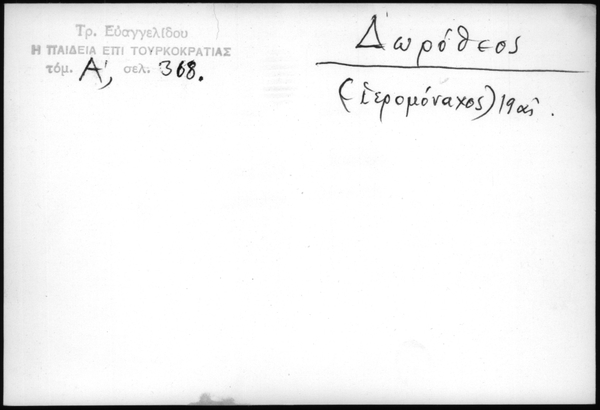 Τρ. Εὐαγγελίδου
Η ΠΑΙΔΕΙΑ ΕΠΙ ΤΟΥΡΚΟΚΡΑΤΙΑΣ
τόμ. Α', σελ. 368.
Δωρόθεος
(ἱερομόναχος) 19 αἰ.